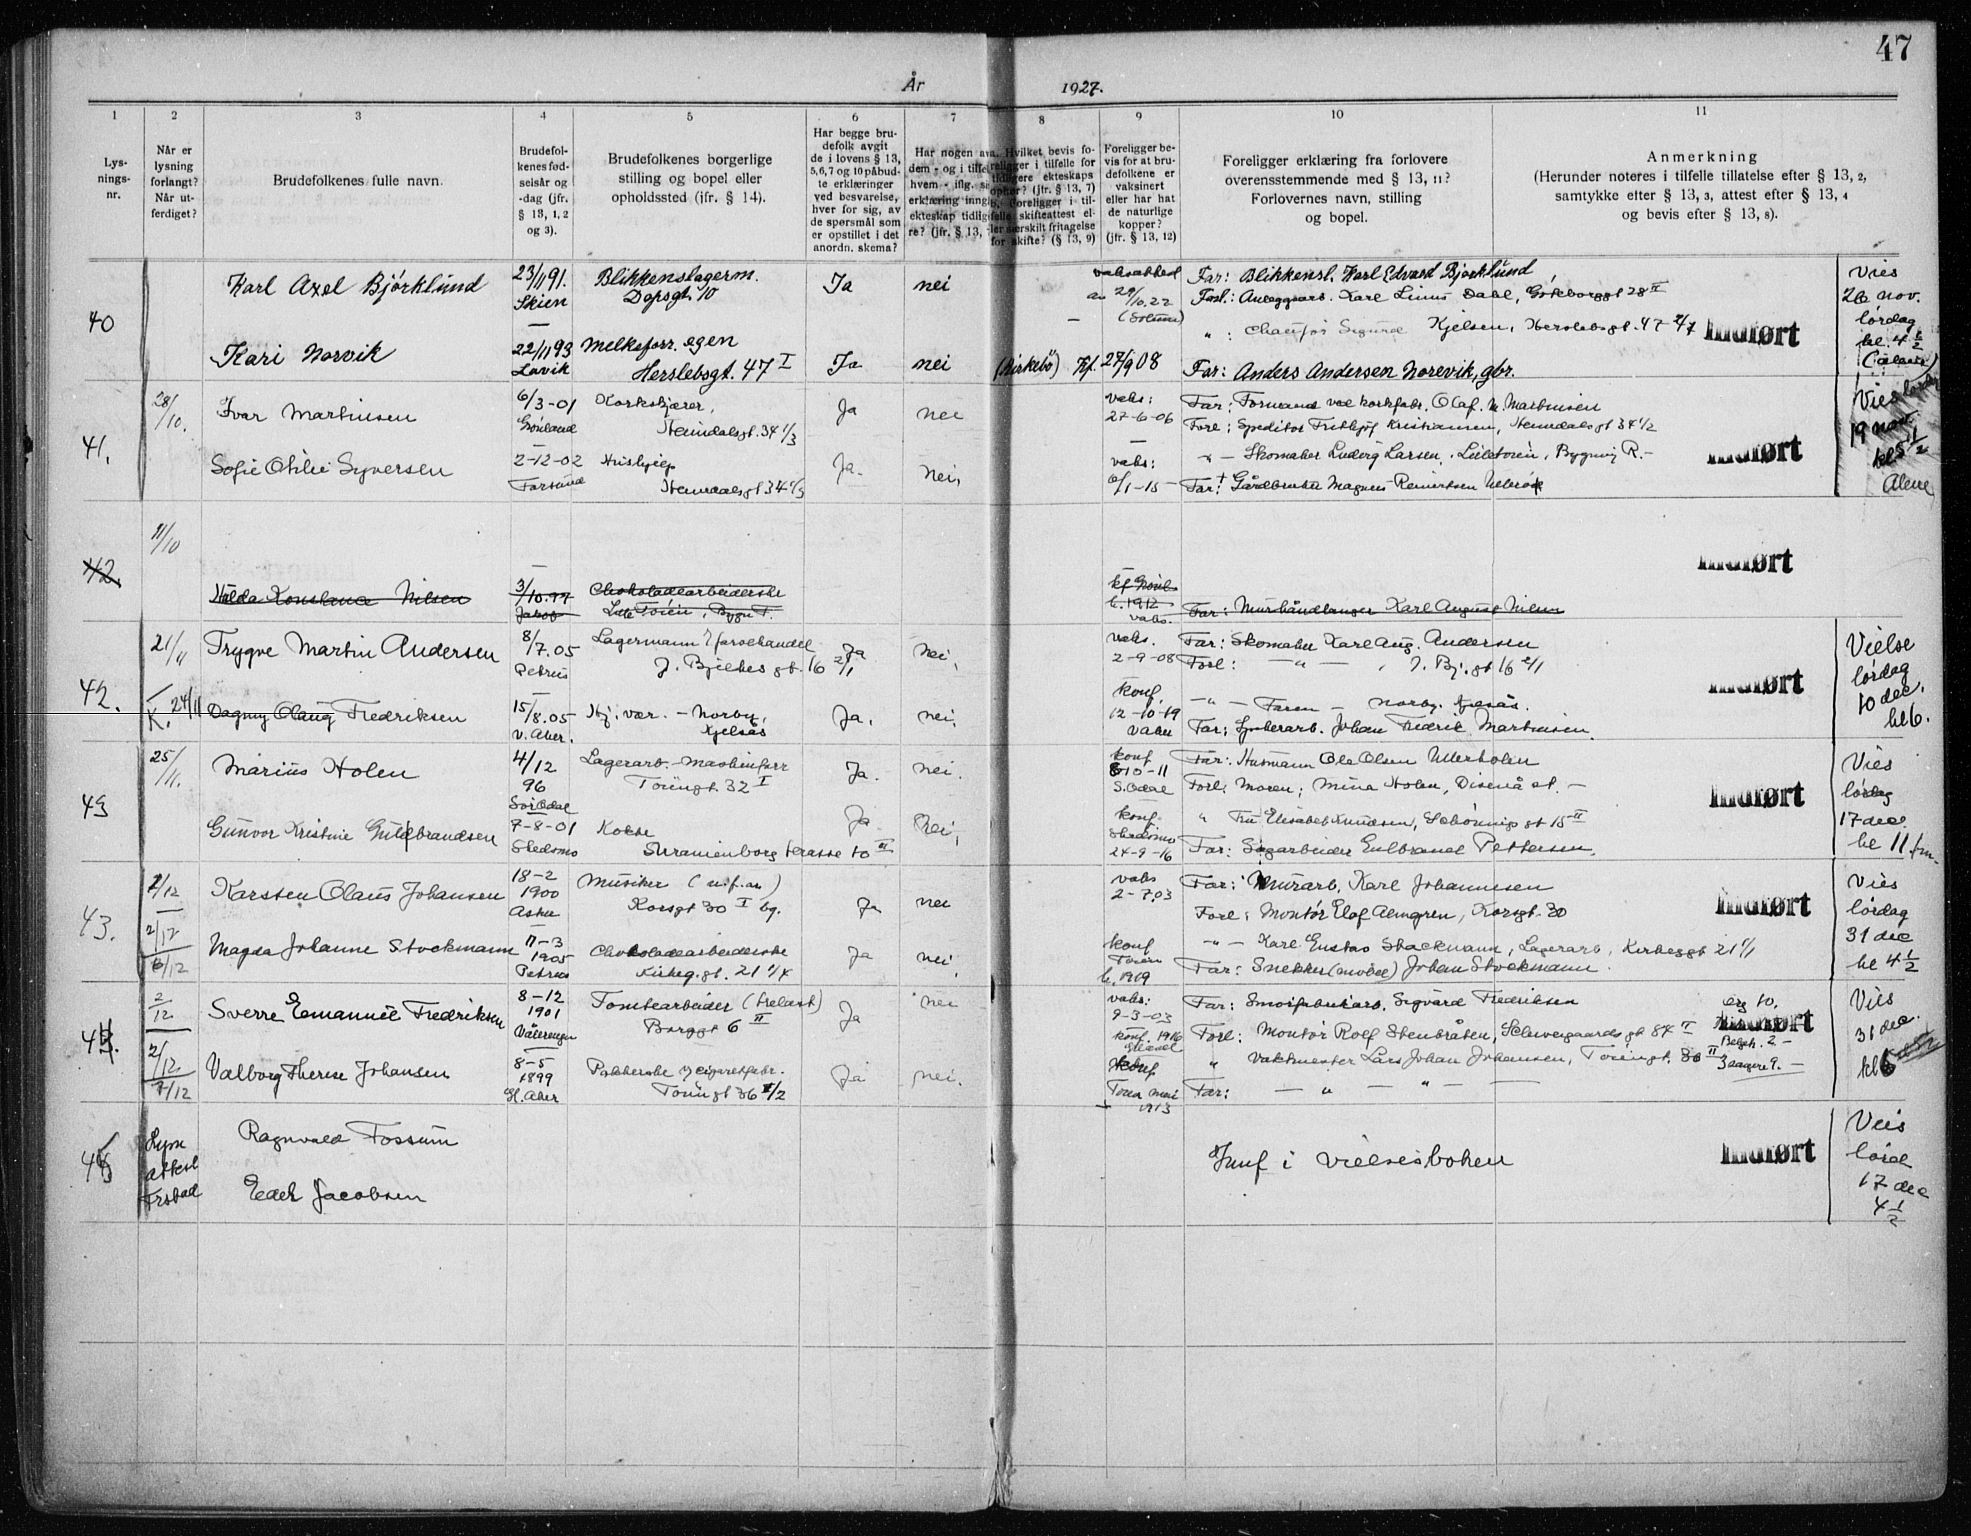 47
År 1927.
1 2 3 4 5 6 7 8 9 10 11
Lys-
nings-
nr.
Når er
lysning
forlangt?
Når ut-
ferdiget?
Brudefolkenes fulle navn.
Brudefol-
kenes fød-
selsår og
-dag (jfr.
§ 13, 1, 2
og 3).
Brudefolkenes borgerlige
stilling og bopel eller
opholdssted (jfr. § 14).
Har begge bru-
defolk avgit
de i lovens § 13,
5, 6, 7 og 10 påbud-
te erklæringer
ved besvarelse,
hver for sig, av
de spørsmål som
er opstillet i det
anordn. skema?
Har nogen av
dem - og i tilfelle
hvem - iflg.
erklæring inngå
ekteskap tidlig
re? (jfr. § 13,
Hvilket bevis fo-
religger i tilfelle for
tidligere ekteskaps
ophør? (jfr. § 13, 7)
Foreligger i til-
felle skifteattest el-
ler særskilt fritagelse
for skifte? (§ 13, 9)
Foreligger be-
vis for at bru-
defolkene er
vaksinert
eller har hat
de naturlige
kopper?
(jfr. § 13, 12)
Foreligger erklæring fra forlovere
overensstemmende med § 13, 11?
Forlovernes navn, stilling
og bopel.
Anmerkning
(Herunder noteres i tilfelle tillatelse efter § 13, 2,
samtykke efter § 13, 3, attest efter § 13, 4
og bevis efter § 13, 8).
40
Karl Axel Bjørklund
23/11 91.
Skien
Blikkenslagerm.
Dopsgt. 10
Ja
nei
29/10.22
(Solum)
Far: Blikkensl. Karl Edvard Bjørklund,
Forl: Anleggsarb. Karl Linus Dahl, Gøteborggt 28 II
" : Chaufør Sigurd Kjelsen, Herslebsgt. 47 2/7
Indført
Vies
26 nov.
lørdag
kl. 4 1/2
(alene)
Kari Norvik
22/11 93
Lavik
Melkeforr. egen
Herslebsgt. 47 I
Ja
nei
(Kirkebö) Kf. 27/9 08
Far: Anders Andersen Norevik, gbr.
41.
28/10.
Ivar Martinsen
6/3-01
Grønland
Korkskjærer,
Heimdalsgt. 34 1/3
Ja
nei
vaks:
27-6-06
Far: Formand ved korkfabr. Olaf M. Martinsen
Forl: Speditør Frithjof Kristiansen, Heimdalsgt 34 1/2
Sofie Otilie Syversen
2-12-02
Farsund
Hushjelp
Heimdalsgt 34 1/3
Ja.
Nei,
vaks:
6/1-15
" - Skomaker Ludvig Larsen, Lilletøien, Bygning R.-
Far: † Gårdbruker Magnus Reinertsen
Indført
Vies lørdag
19 nov.
kl 5 1/2
Alene
42.
11/10
Hilda Konstance Nilsen
3/10.97
Jakob
Chokoladearbeiderske
Lille Tøien, Bygn F.
b. 1912
vaks.
Far: Murhåndlanger Karl August Nilsen
Indført
42.
21/11
Trygve Martin Andersen
8/7.05
Petrus
Lagermann i farvehandel
J. Bjelkes gt. 16 2/1
Ja
Nei,
vaks.
2-9-08
Far: Skomaker Karl Aug. Andersen
Forl: - " - , J. Bj. gt 16 2/1
K. 24/11
Dagny Olaug Fredriksen
15/8.05
v. Aker.
Hj. vær. - Norby,
Kjelsås
Ja.
nei,
konf.
12-10-19
Vaker
- " - Faren - Norby, Kjelsås.
Far: Snekkerarb. Johan Fredrik Martinsen.
Indført
Vielse
lørdag
10 dec.
kl 6.
43
25/11.
Marius Holen
4/12
96
Sør Odal
Lagerarb. - maskinforr
Tøiengt. 32 I
Ja.
nei.
konf
8-10-11
S. Odal
Far: Husmann Ole Olsen Ullerholen
Forl: Moren: Mina Holen, Disenå st. -
Gunvor Kristine Guldbrandsen
7-8-01
Skedsmo
Kokke
Uranienborg terasse 10 III
Ja
Nei,
konf
Skedsmo
24-9-16
" Fru Elisabet Knudsen, Schønings gt 15 II
Far: Sagarbeider Gulbrand Pettersen.
Indført
Vies
lørdag
17 dec
kl 11 fm.
43.
2/12
Karsten Olaus Johansen
18-2
1900
Asker
Musiker (u.f.an)
Korsgt 30 I bg.
Ja
nei
vaks
2-7.03
Far: Murarb. Karl Johannesen
Forl: Montør Elof Almgren, Korsgt. 30
2/12
6/12
Magda Johanne Stockmann
11-3
1905
Petrus
Chokoladearbeiderske
Kirkeg. gt. 21 1/4
Ja
nei,
konf
Tøien
b. 1919
- " - Karl Gustav Stockmann, Lagerarb, Kirkeggt 21 1/1
Far: Snekker (møbel) Johan Stockmann.
Indført
Vies
lørdag
31 dec
kl 4 1/2
2/12
Sverre Emanuel Fredriksen
8-12
1901
Vålerengen
Tomtearbeider (trelast)
Borggt 6 II
Ja
nei
vaks:
9-3-03
konf. 1916
Far: Smørfabrikarb. Sigvard Fredriksen
Forl: Montør Rolf Stenbråten, Schweigaards gt 84 I
2/12
7/12
Valborg Therese Johansen
8-5
1899
Gl. Aker
Pakkerske v/ cigaretfabr.
Tøiengt 36 I/2
Ja
nei.
konf
Tøien mai
1913
" Vaktmester Lars Johan Johansen, Tøiengt. 36 II
Far: - " - " -
org 10.
Belysn. 2 -
3 sangere 9. -
Indført
Vies
31 dec.
kl 6
45
Lysn
attest
Frstad
Ragnvald Fossum
Edel Jacobsen
Innf i vielsesboken
Indført
Vies
lørd
17 dec
4 1/2